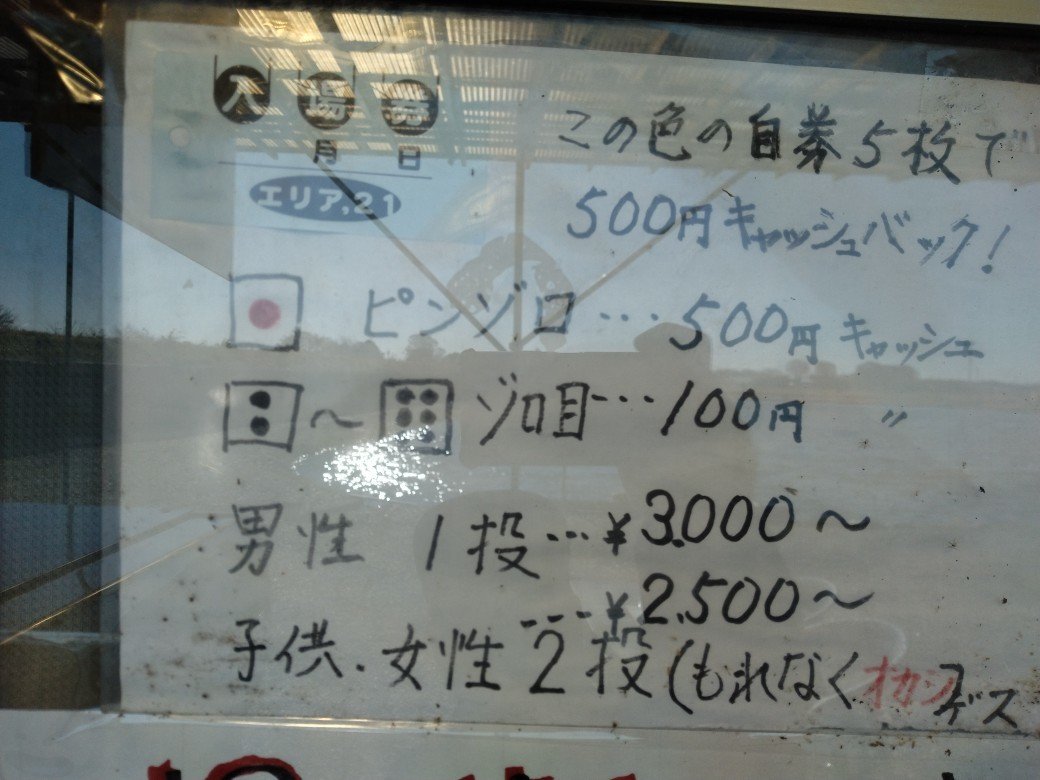 入場券
月 日
エリア.21
この色の自券5枚で
500円キャッシュバック!
ピンゾロ…500円キャッシュ
〜 ゾロ目…100円 〃
男性 1投…¥3.000〜
---¥2.500〜
子供.女性 2投(もれなくオカシ
デス